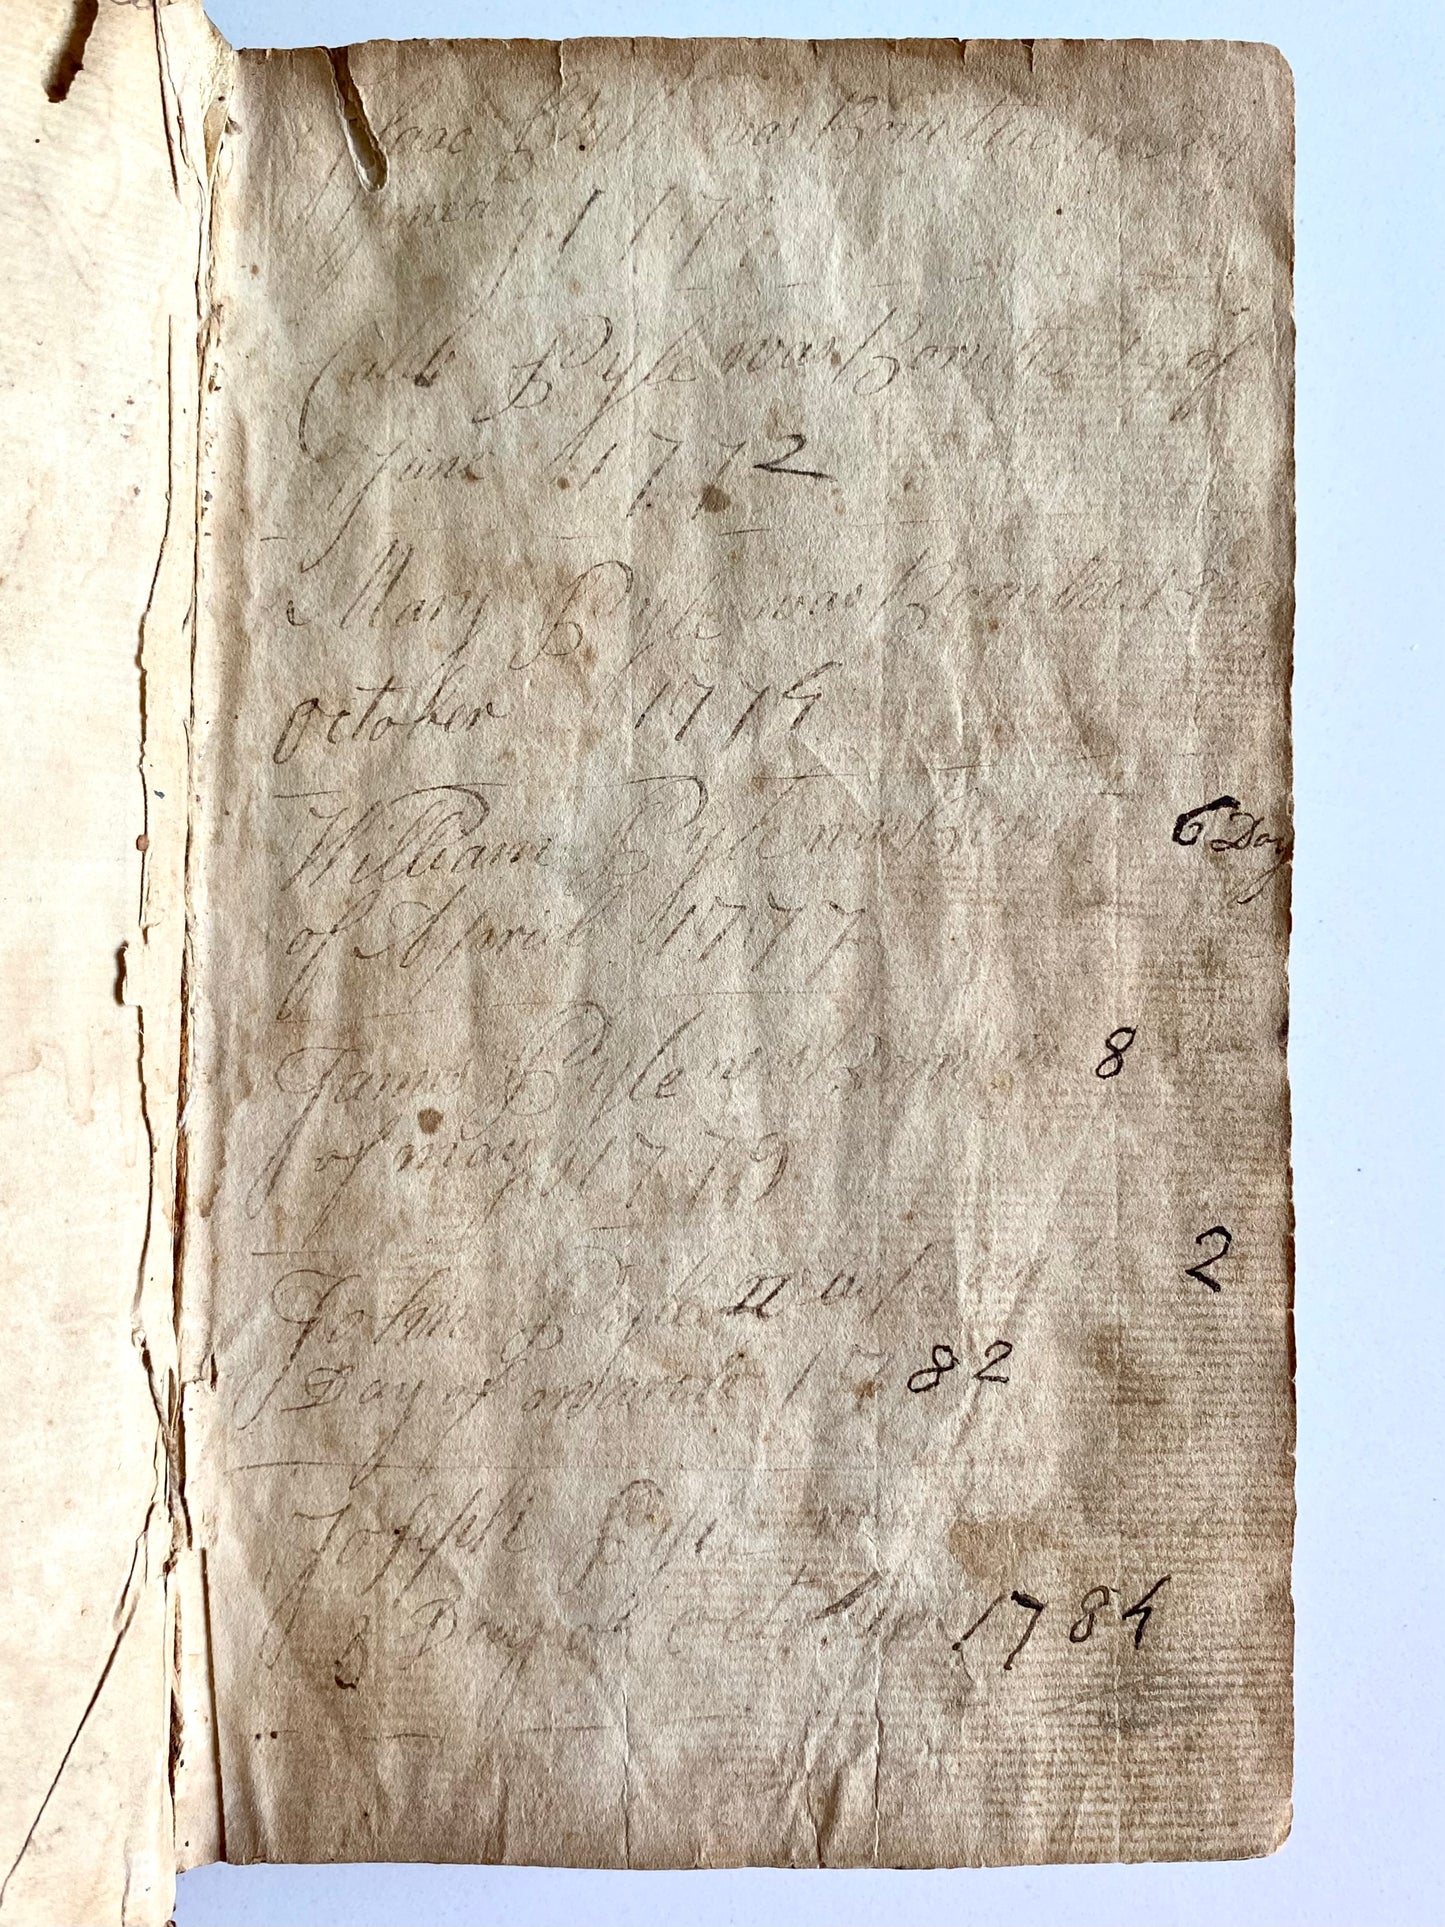 Isaac Pyle was Born the
January 177
Caleb Pyle was Born the of
June 1772
Mary Pyle was Born the 18
october 1774
William Pyle was Born 6 Day
of April 1777
James Pyle was Born 8
of may 1779
John Pyle was 2
Day of march 1782
Joseph Pyle
Day of october 1784